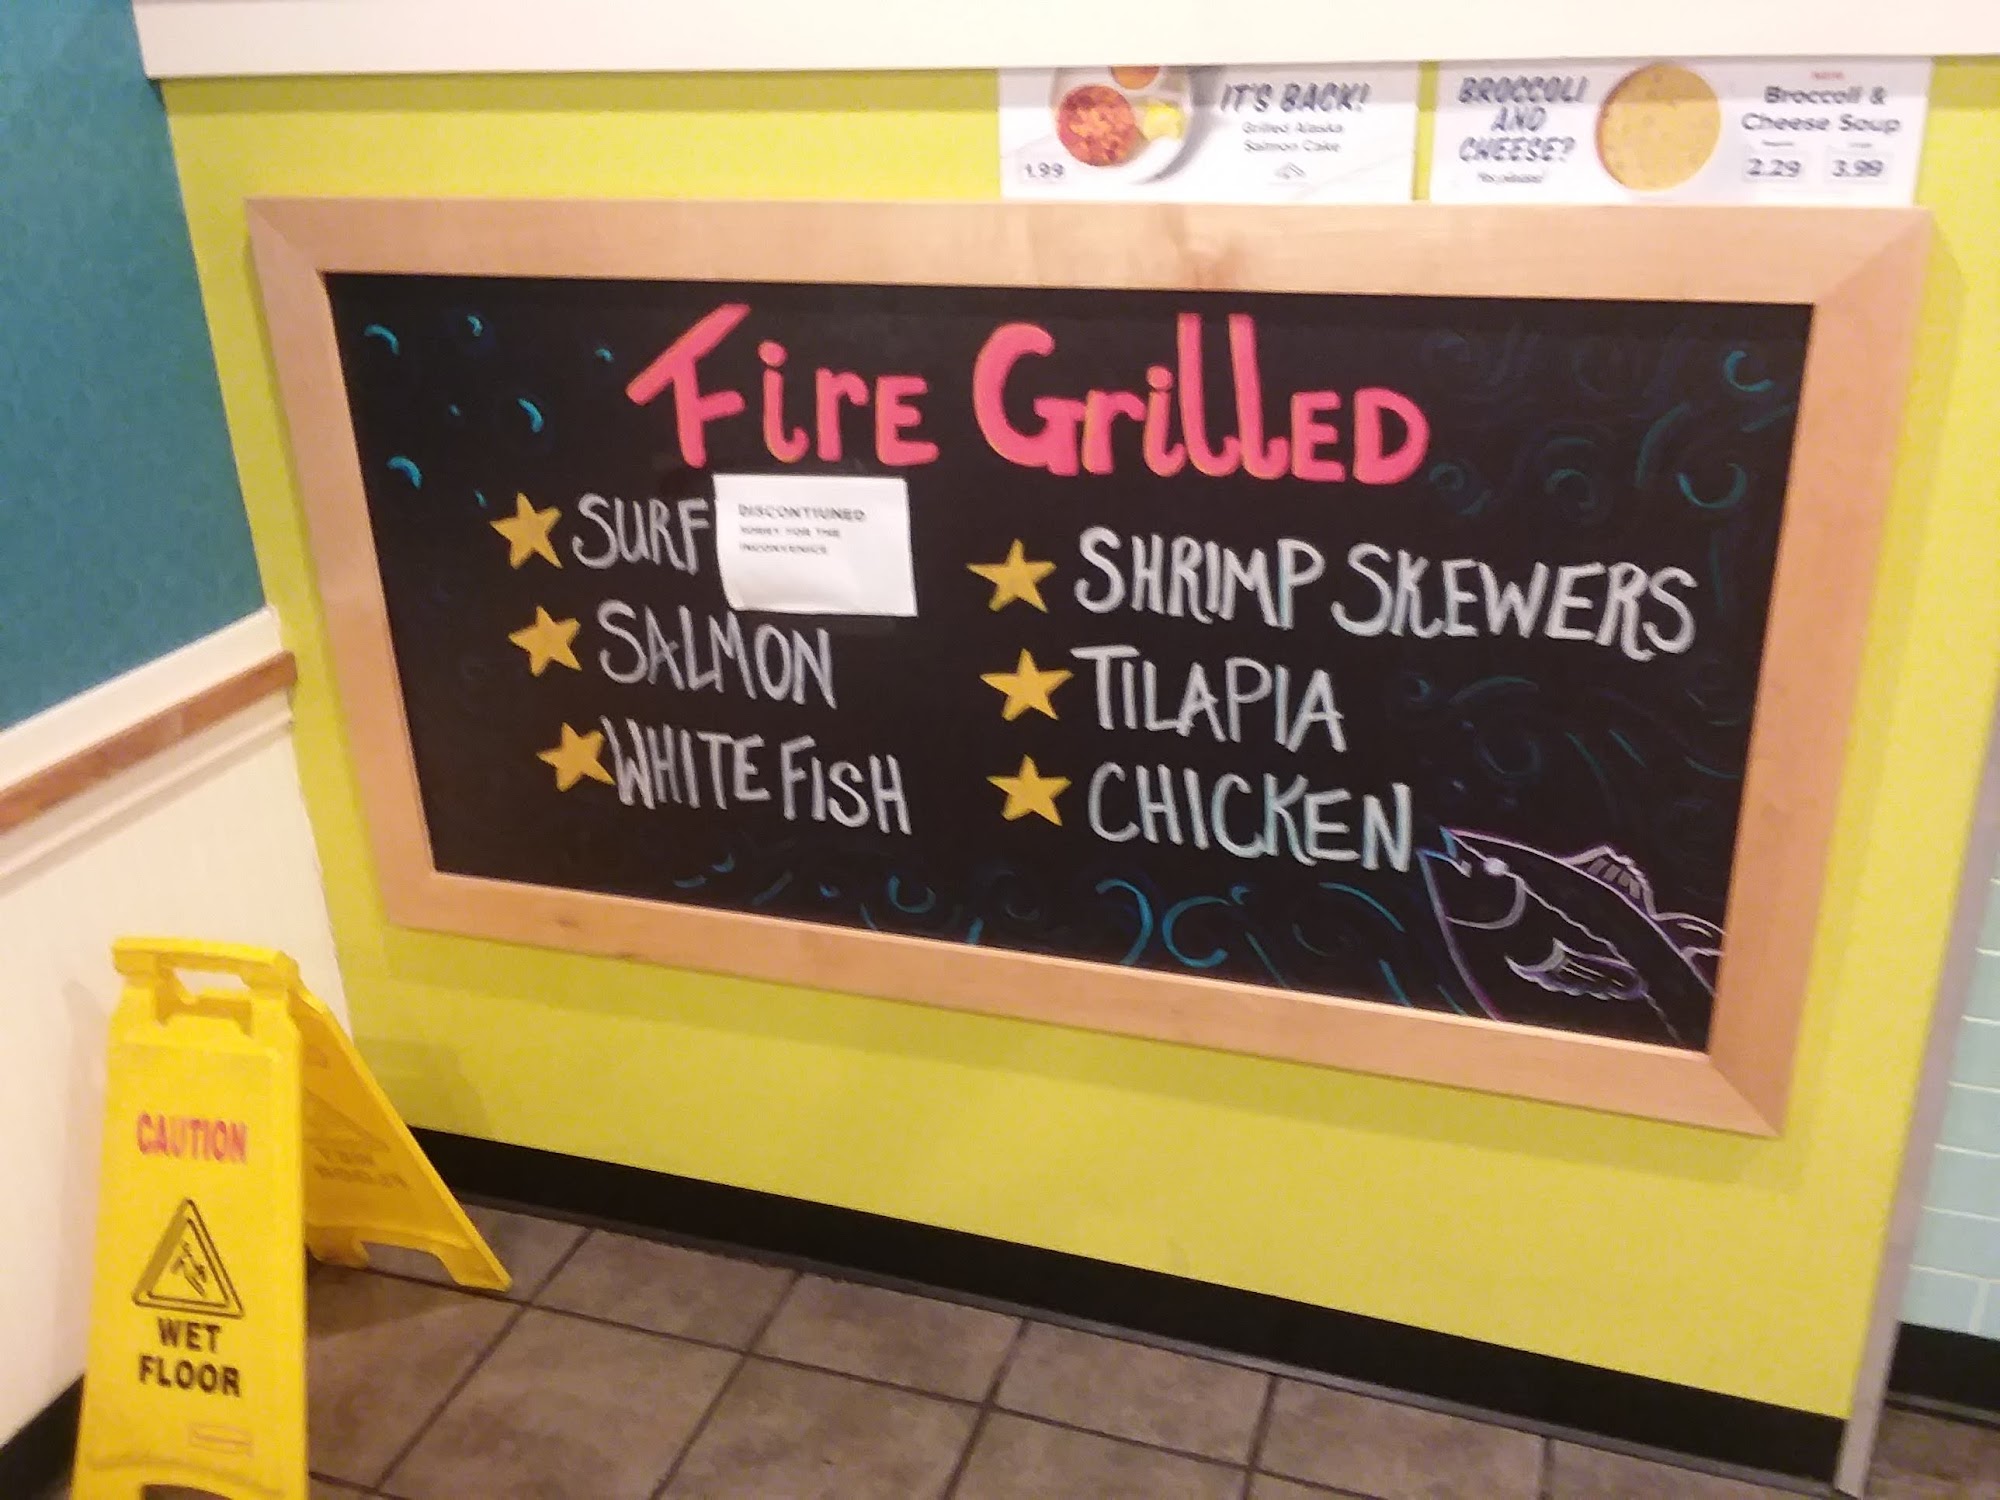 IT'S BACK!
Grilled Alaska
Salmon Cake
1.99
BROCCOLI
AND
CHEESE?
Yes please!
Broccoli &
Cheese Soup
2.29 3.99
Fire Grilled
SURF
DISCONTIUNED
SORRY FOR THE
INCONVENICE
SALMON
WHITE FISH
SHRIMP SKEWERS
TILAPIA
CHICKEN
CAUTION
WET
FLOOR